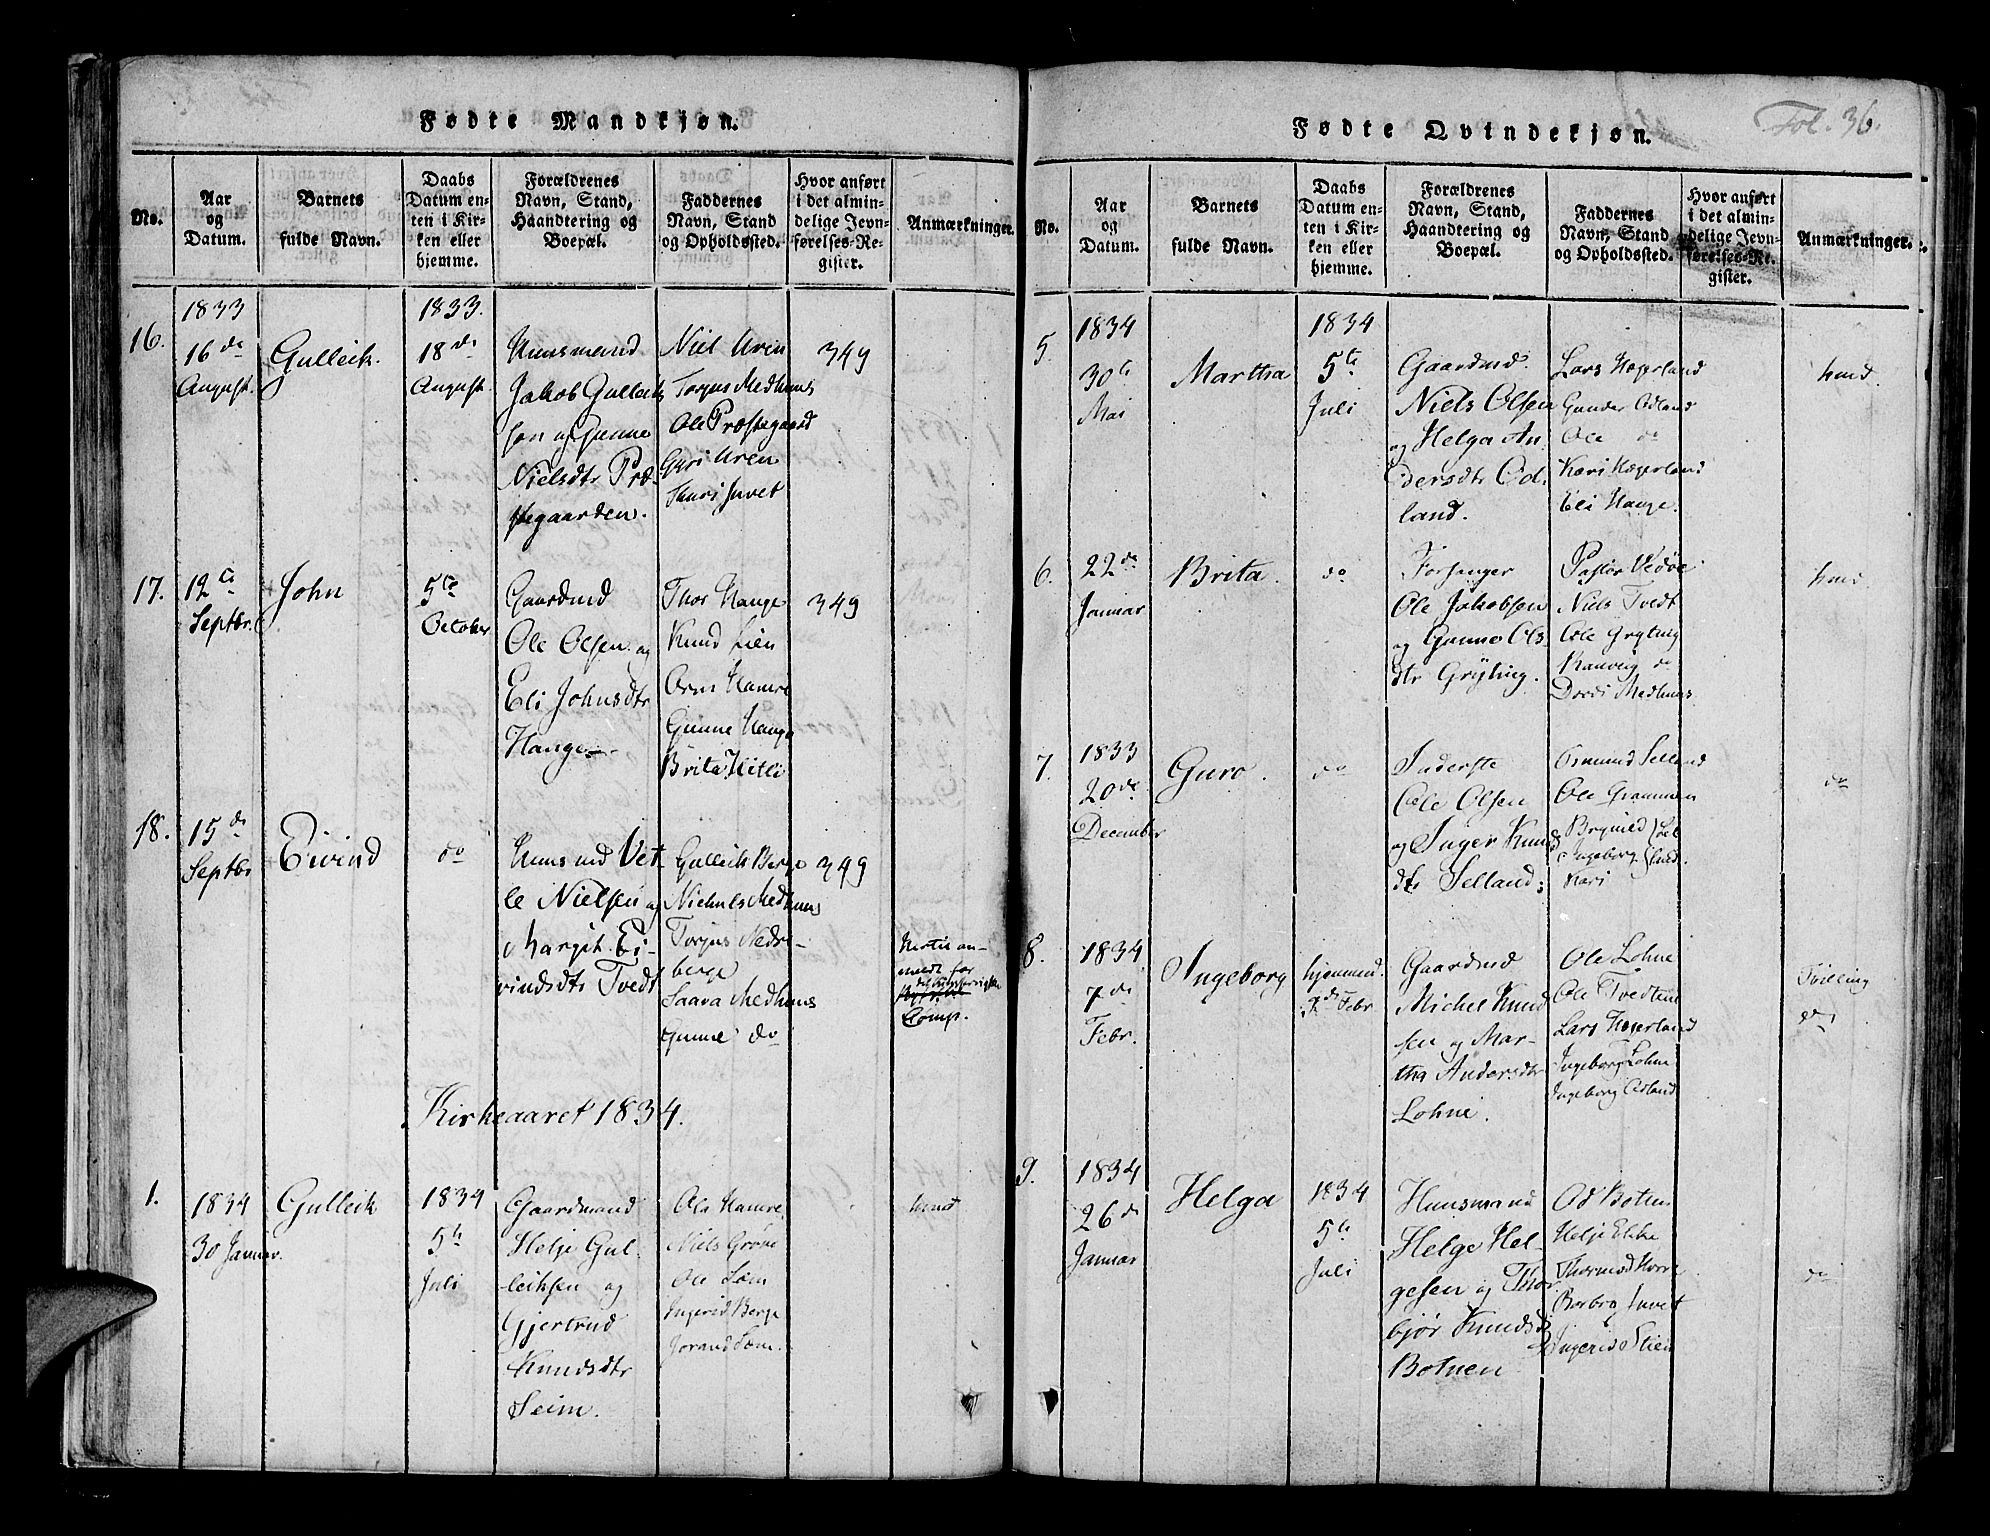 Fødte Mandkjøn.
No.
Aar
og
Datum.
Barnets
fulde Navn.
Daabs
Datum en-
ten i Kir-
ken eller
hjemme.
Forældrenes
Navn, Stand,
Haandtering og
Boepæl.
Faddernes
Navn, Stand
og Opholdssted.
Hvor anført
i det almin-
delige Jevn-
førelses-Re-
gister.
Anmærkninger.
16.
1833
16de
August.
Gulleik.
1833.
18de
August.
Huusmand
Jakob Gulleik
søn og Gunne
Nielsdtr Præ-
stegaarden.
Niel Uren
Torjus Medhuus
Ole Præstegaard
Guri Uren
Sturi Juvet
349
17.
12te
Septbr.
John
5te
October
Gaardmd
Ole Olsen og
Eli Johnsdtr
Hauge.
Thor Hauge
Knud Lien
Orm Hamre
Gunne Hauge
Brita Hitli
349
18.
15de
Septbr
Eivind
do
Huusmd Vet-
le Nielsen og
Margit Ei-
vindsdtr Tvedt
Gulleik Berge
Nichuls Medhuus
Torjus Nedre-
berge
Saara Medhuus
Gunne do
349
meldt for
Comp.
Kirkeaaret 1834.
1.
1834
30 Januar.
Gulleik
1834
5te
Juli
Gaardmand
Helje Gul-
leiksen og
Gjertrud
Knudsdtr
Seim.
Ole Hamre
Niels Grøve
Ole Søm
Ingerid Berge
Jorand Søm.
hmd
Fødte Qvindekjøn.
Fol. 36.
No.
Aar
og
Datum.
Barnets
fulde Navn.
Daabs
Datum en-
ten i Kir-
ken eller
hjemme.
Forældrenes
Navn, Stand,
Haandtering og
Boepæl.
Faddernes
Navn, Stand
og Opholdssted.
Hvor anført
i det almin-
delige Jevn-
førelses-Re-
gister.
Anmærkninger.
5.
1834
30te
Mai
Martha
1834
5te
Juli
Gaardmd.
Niels Olsen
og Helga An
dersdtr Od-
land.
Lars Hægerland
Gunder Odland
Ole do
Kari Hægerland
Eli Hauge.
hmd.
6.
22de
Januar
Brita.
do
Forsanger
Ole Jakobsen
og Gunne Ols-
dtr Gryting.
Pastor Vedøe
Niels Tvedt
Ole Gryting
Ranveig do
Dordi Medhuus
hmd.
7.
1833
20de
December
Guro.
do
Inderste
Ole Olsen
og Inger Knuds
dtr Selland.
Osmund Selland
Ole Grammen
Brynild
Ingeborg
Kari
Sel
land.
do
8.
1834
7de
Febr.
Ingeborg
hjemmed.
7de Febr
Gaardmd
Michel Knud
sen og Mar-
tha Andersdtr
Lohne.
Ole Lohne
Ole Tvedtene
Lars Hægerland
Ingeborg Lohne
Ingeborg Odland
Tvilling
do
9.
1834
26de
Januar
Helga
1834
5te
Juli
Huusmand
Helge Hel-
gesen og Thor
bjør Knudsd
Botnen
Od Botnen
Helje Ekke
Thormod Horre
Barbro Juvet
Ingerid Stien
do